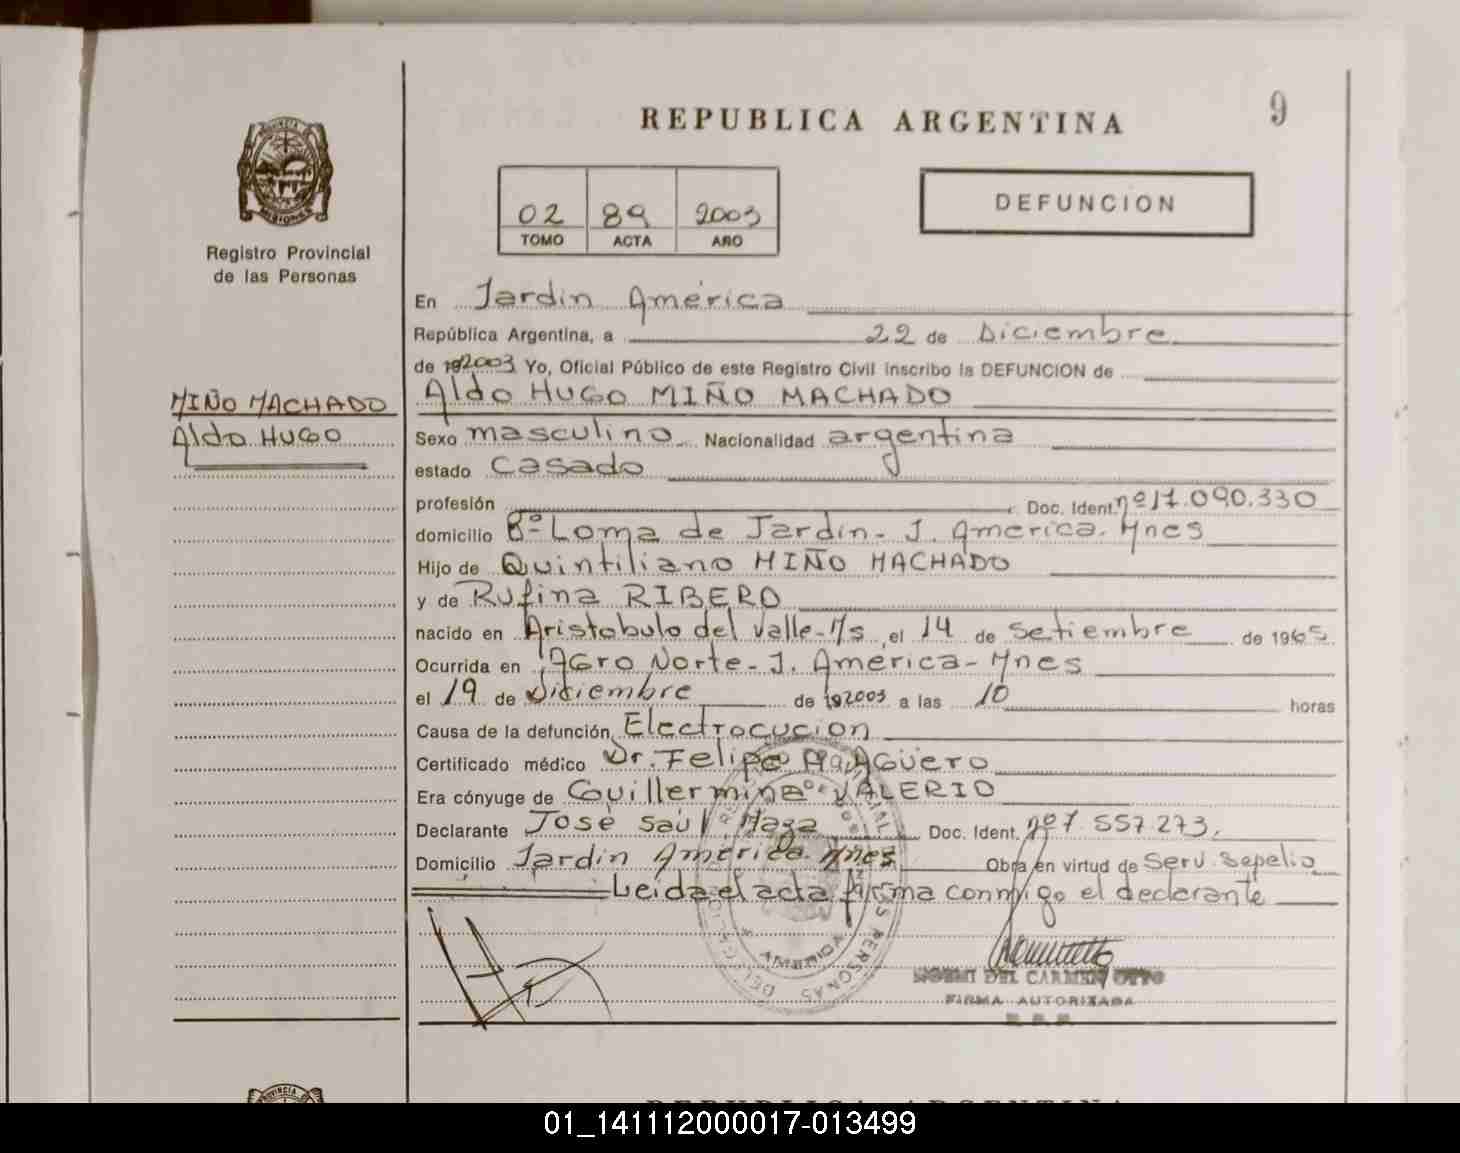 REPUBLICA ARGENTINA
9
PROVINCIA
MISIONES
Registro Provincial
de las Personas
02 89 2003
TOMO ACTA AÑO
DEFUNCION
En Jardin América
República Argentina, a 22 de Diciembre
de 192003 Yo, Oficial Público de este Registro Civil inscribo la DEFUNCION de
MIÑO MACHADO
Aldo HUGO
Aldo HUGO MIÑO MACHADO
Sexo masculino Nacionalidad argentina
estado Casado
profesión Doc. Ident. nº 17.090.330
domicilio 8º- Loma de Jardin- J. America- Mnes
Hijo de Quintiliano MIÑO MACHADO
y de Rufina RIBERO
nacido en Aristobulo del Valle- M/s el 14 de Setiembre de 1965
Ocurrida en Agro Norte- J. América- Mnes
el 19 de Diciembre de 192003 a las 10 horas
Causa de la defunción Electrocución
Certificado médico Dr. Felipe AGÜERO
Era cónyuge de Guillermina VALERIO
Declarante José Saúl Maza Doc. Ident. nº 7.557.273.
Domicilio Jardin América Mnes Obra en virtud de Serv. Sepelio
Leida el acta firma conmigo el declarante
AMERICA
PERSONAS
NOEMI DEL CARMEN OTTO
FIRMA AUTORIZADA
PROVINCIA
REPUBLICA ARGENTINA
01_141112000017-013499